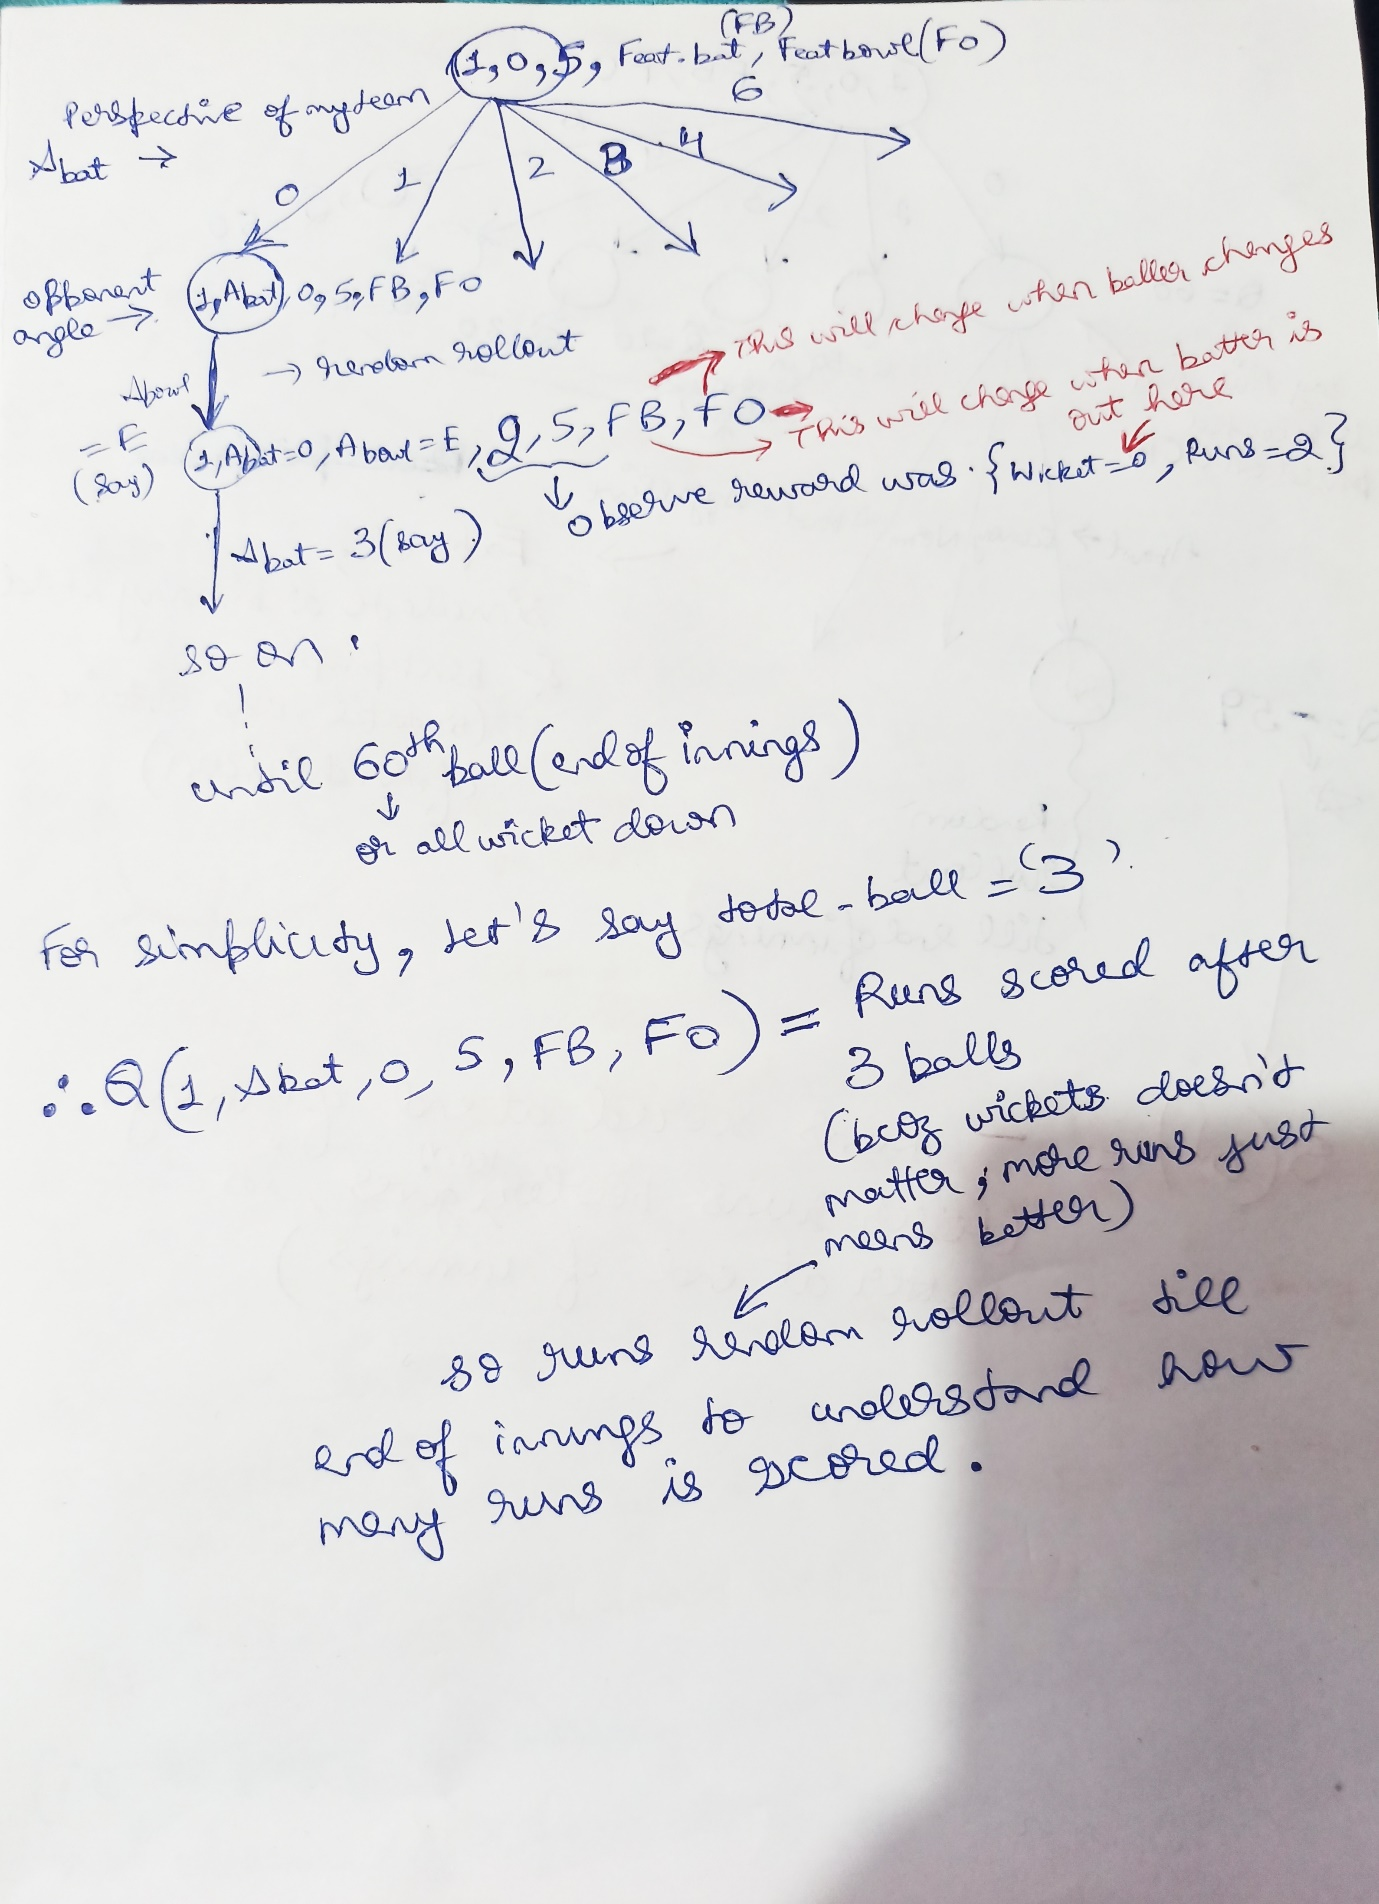 (FB)
(1,0,5, Feat.bat, Featbowl(FO)
Perspective of my team
Abat →
0 1 2 3 4 6
opponent
angle →
(1,Abat), 0, 5, FB, FO
→ random rollout
This will change when baller changes
Abowl
= E
(say)
(1,Abat=0, Abowl=E, 2, 5, FB, FO
This will change when batter is
out here
observe reward was . {Wicket=0, Runs=2}
Abat = 3(say)
so on .
until 60th ball (end of innings)
or all wicket down
For simplicity, let's say total-ball = '3'.
∴ Q(1, Abat, 0, 5, FB, FO) = Runs scored after
3 balls
(bcoz wickets doesn't
matter; more runs just
means better)
so runs random rollout till
end of innings to understand how
many runs is scored.